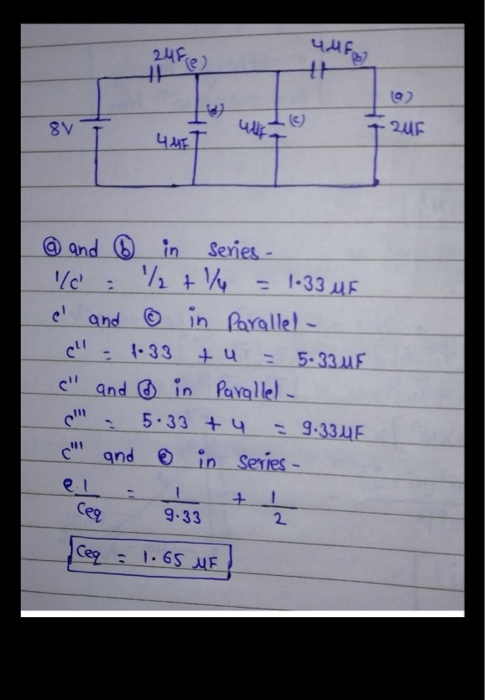 2μF(e) 4μF(b)
8V 4μF (d) 4μF (c) (a) 2μF
ⓐ and ⓑ in series -
1/c' = 1/2 + 1/4 = 1.33 μF
c' and ⓒ in Parallel -
c'' = 1.33 + 4 = 5.33μF
c'' and ⓓ in Parallel -
c''' = 5.33 + 4 = 9.33μF
c''' and ⓔ in series -
e. 1/Ceq = 1/9.33 + 1/2
Ceq = 1.65 μF